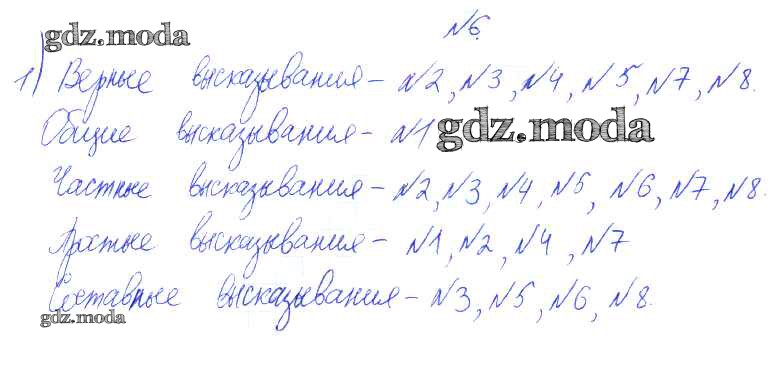 №6.
gdz.moda
1) Верные высказывания – №2, №3, №4, №5, №7, №8.
Общие высказывания – №1
gdz.moda
Частные высказывания – №2, №3, №4, №5, №6, №7, №8.
Простые высказывания – №1, №2, №4, №7
Составные высказывания – №3, №5, №6, №8.
gdz.moda